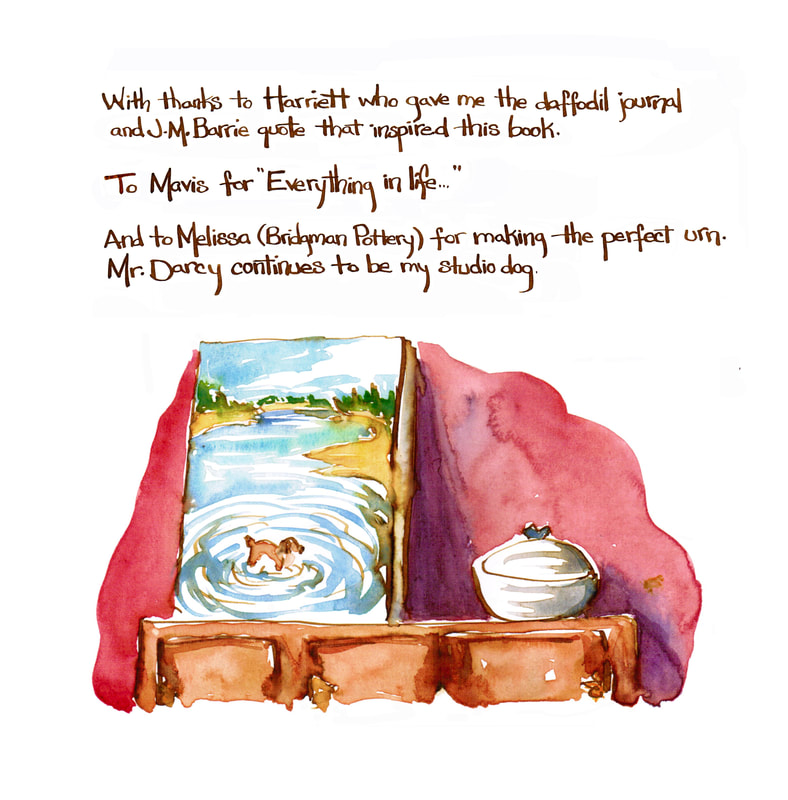 With thanks to Harriett who gave me the daffodil journal
and J.M. Barrie quote that inspired this book.
To Mavis for "Everything in life..."
And to Melissa (Bridgman Pottery) for making the perfect urn.
Mr. Darcy continues to be my studio dog.